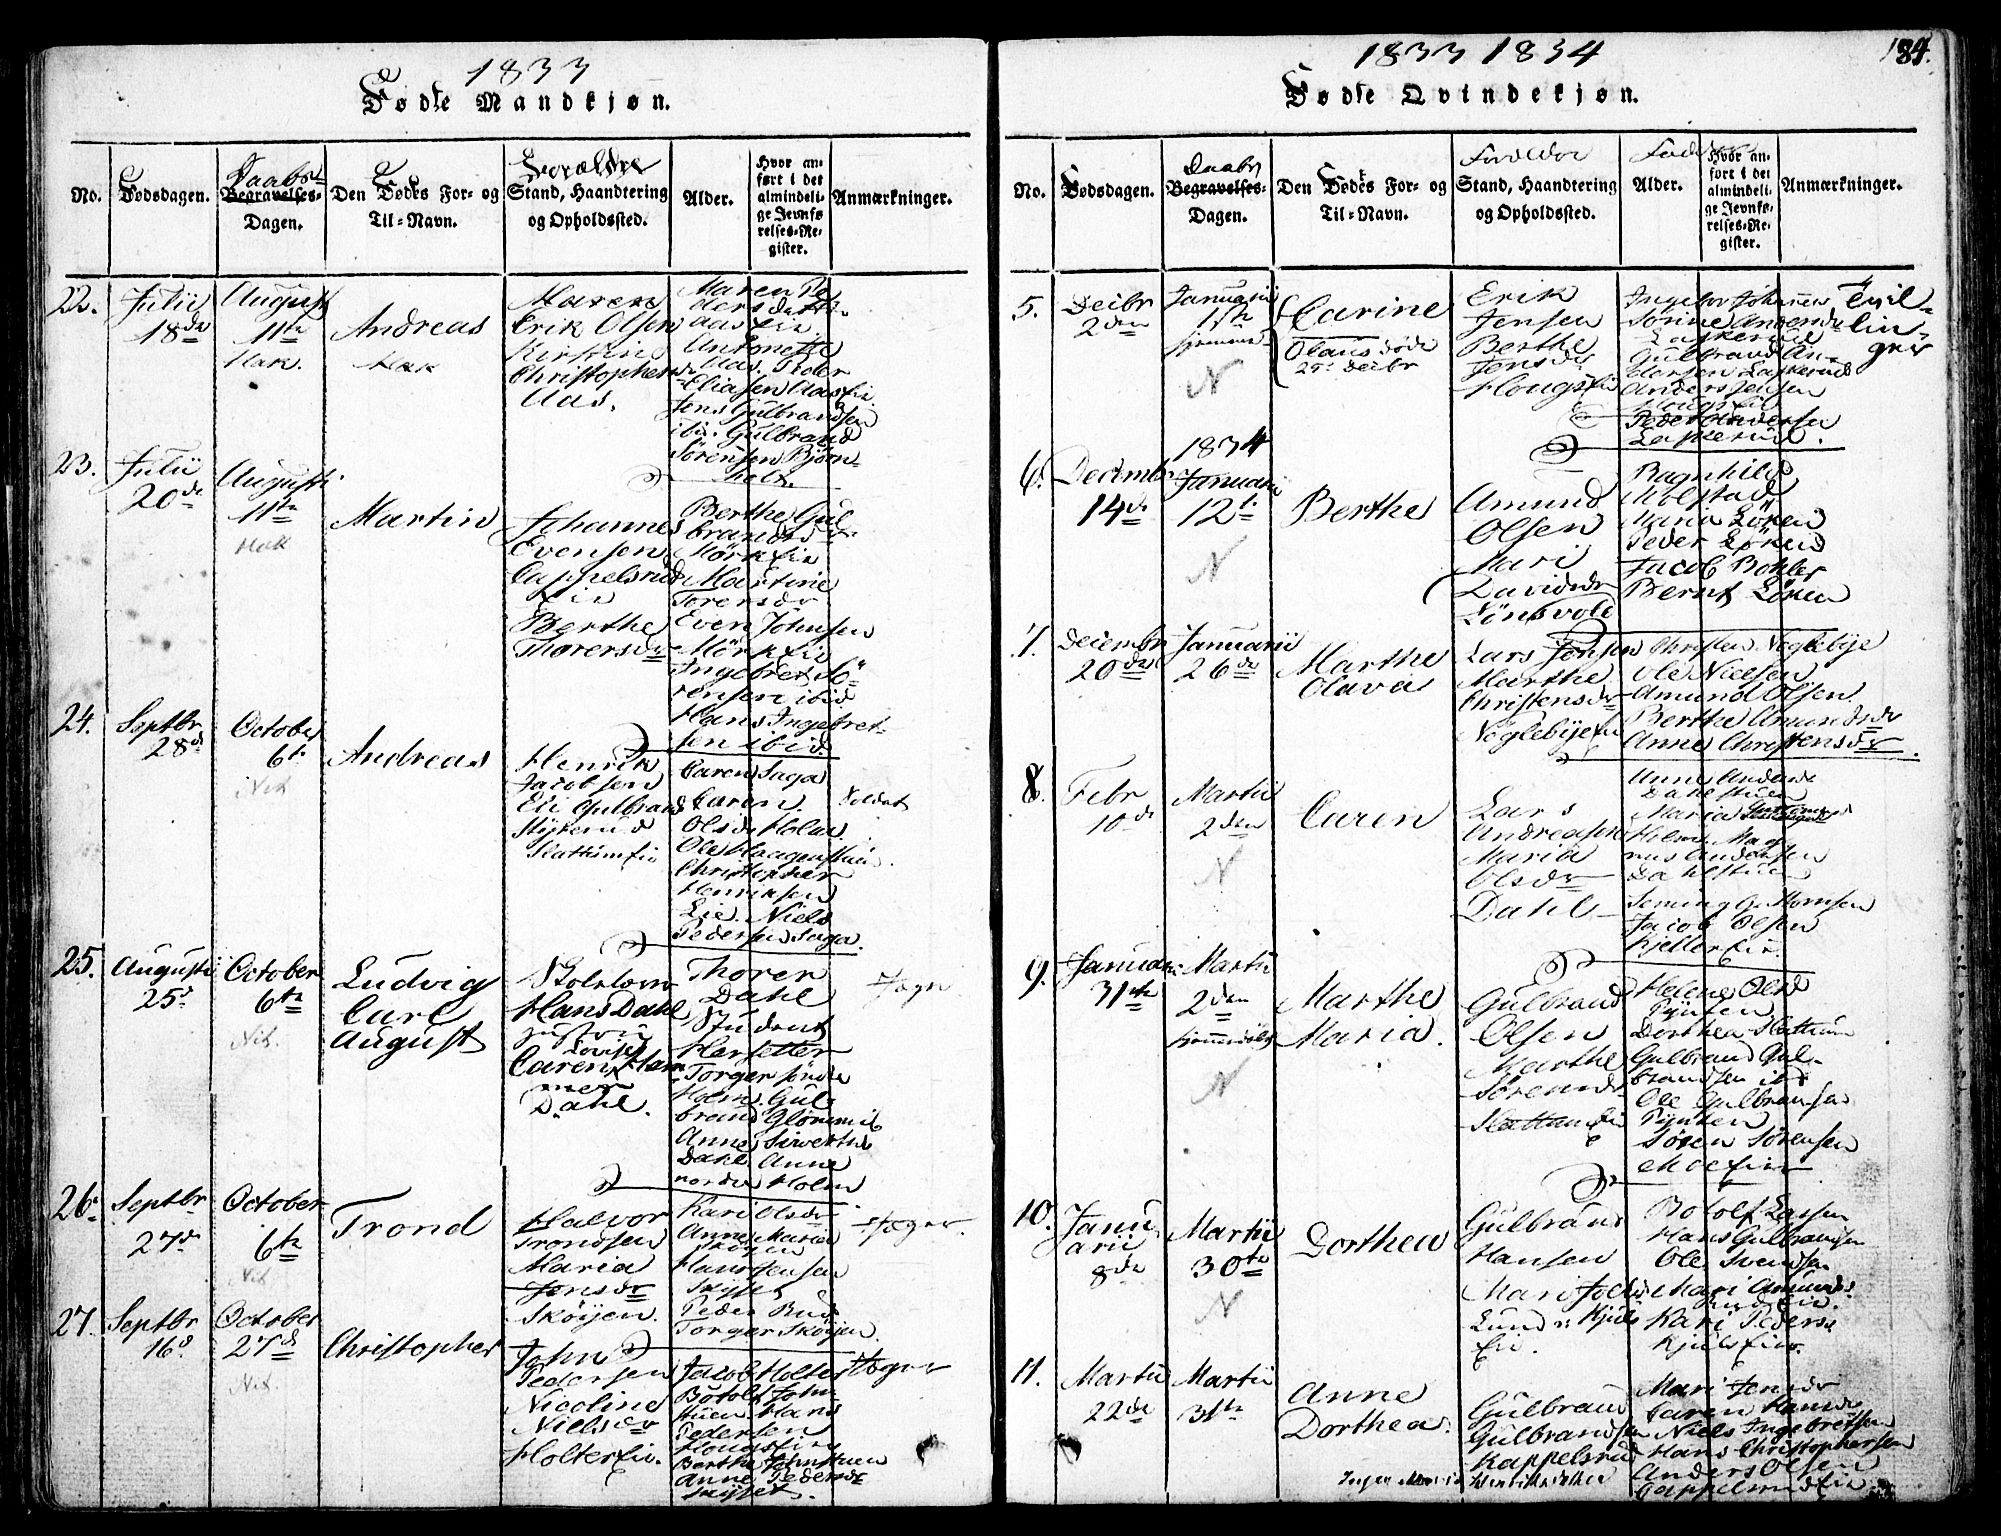 1833
Fødte Mandkjøn.
No.
Fødsdagen.
Daabs-
Begravelses-
Dagen.
Den Fødes For- og
Til-Navn.
Forældre
Stand, Haandtering
og Opholdssted.
Alder.
Hvor an-
ført i det
almindeli-
ge Jevnfø-
relses-Re-
gister.
Anmærkninger.
22.
Julii
18de
August
11te
Hak.
Andreas
Hak
Maren
Erik Olsen
Kirstine
Christophersd
Aas.
Maren Pe
dersdatter
Aas Eie
Antonette
Aas. Peder
Eliasen Aas Eie.
Jens Gulbrandsen
ibid. Gulbrand
Sørensen Bjørn-
holt.
23.
Julii
20de
Augusti
11te
Hak
Martin
Johannes
Evensen
Cappelsrud
Eie
Berthe
Thorersdr
Berthe Gul
brandsdr
Mørk Eie
Martine
Torersdr
Even Johnsen
Mørk Eie
Ingebret Sö
rensen ibid
Hans Ingebret-
sen ibid.
24.
Septbr
28de
October
6te
Nit
Andreas
Henrik
Jacobsen
Eli Gulbrandsd
Slattum Eie
Caren Saga
Caren
Olsdr Holm
Ole Haagenstuen
Christopher
Henriksen
Lie. Niels
Pedersen Saga.
Soldat
25.
Augusti
25d
October
6te
Nit.
Ludvig
Carl
August
Hans Dahl
Lovise
Caren Ham
mer
Dahl.
Thorer
Dahl
Student
Harsetter
Torger søndre
Holm. Gul-
brand Glømmi
Anne Siverts
Dahl Anne
nordre Holm
Sogn
26.
Septbr
27de
October
6te
Nit.
Trond
Halvor
Trondsen
Maria
Jensdr
Sköijen.
Kari Olsdr
Anne Maria
Sköijen
Hans Jensen
Skÿset
Peder Bud
Torger Sköijen.
27.
Septbr
16d
October
27de
Nit.
Christopher
John
Pedersen
Nicoline
Nielsdr
Holter Eie.
Jacob Holter
Botolf John
stuen Hans
Pedersen
Hougs Eie
Berthe Johnstuen
Anne Pedersdr
Skÿset.
1833 1834
184.
Fødte Qvindekjøn.
No.
Fødsdagen.
Daabs
Begravelses-
Dagen.
Den Fødes For- og
Til-Navn.
Forældre
Stand, Haandtering
og Opholdssted.
Fadder
Alder.
Hvor an-
ført i det
almindeli-
ge Jevnfø-
relses-Re-
gister.
Anmærkninger.
5.
Deibr
2den
Januarii
1ste
hjemme
N
Carine
Olaus døde
25d Deibr
Erik
Jensen
Berthe
Jensdr
Hougs Eie
Ingebor Johannes
Sorine Andersdr
Laskerud
Gulbrand An-
dersen Laskerud
Anders Jensen
Hougs Eie
Peder Andersen
Laskerud.
Tvil-
lin-
ger
6.
Decembr
14de
1834
Januarii
12te
N
Berthe
Amund
Olsen
Mari
Davidsdr
Lönsvold
Ragnhild
Molstad
Maria Löken
Peder Löken
Jacob Bohler
Bernt Löken
7.
Deiembr
20de
Januarii
26de
Marthe
Olava
Lars Jonsen
Marthe
Christensdr
Nöglebÿe Eie
Christen Nöglebÿe
Ole Nielsen
Amund Olsen
Berthe Amundsdr
Anne Christensdr.
8.
Febr
10de
Martii
2den
N
Caren
Lars
Andreasen
Maria
Olsdr
Dahl
Anne Andersdr
Dahlstuen
Maria
Holm Mag
nus Andersen
Dahlstuen
Seming Guttormsen
Jacob Olsen
Kjeller Eie.
9.
Januarii
31te
Martii
2den
hjemmedøbt
N
Marthe
Maria.
Gulbrand
Olsen
Marthe
Sörensdr
Slattum Eie
Helene Olsd
Tÿnken
Dorthea Slattum
Gulbrand Gul-
brandsen ibd
Ole Gulbransen
Tÿnken
Sören Sörensen
Moe Eie
10.
Janu
arii
8de
Martii
30te
N
Dorthea
Gulbrand
Hansen
Mari
Lund Kjuls
Eie.
Botolf Larsen
Hans Gulbransen
Ole Svendsen
Mari Amundsd
Lund Eie.
Kari Pedersd
Kjuls Eie.
11.
Martii
22de
Martii
31te
Anne
Dorthea.
Gulbrand
Gulbrandsen
Kappelsrud
Inger Maria
Mari Jensdr
Caren Hansdr
Niels Ingebretsen
Hans Christophersen
Anders Olsen
Cappelsrud Eie